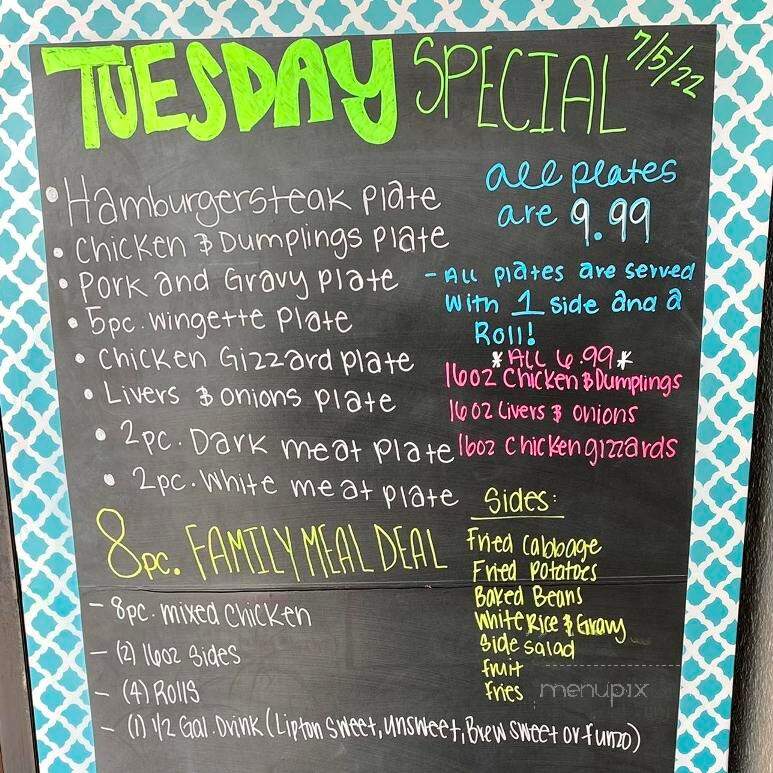 TUESDAY SPECIAL 7/5/22
• Hamburgersteak plate
• Chicken & Dumplings Plate
• Pork and Gravy plate
• 5pc. Wingette Plate
• Chicken Gizzard plate
• Livers & onions plate
• 2pc. Dark meat plate
• 2pc. White meat plate
all plates
are 9.99
- All plates are served
with 1 side and a
Roll!
*All 6.99*
16oz Chicken & Dumplings
16oz Livers & onions
16oz Chicken gizzards
8pc. FAMILY MEAL DEAL
- 8pc. mixed chicken
- (2) 16oz Sides
- (4) Rolls
- (1) 1/2 Gal. Drink (Lipton Sweet, unsweet, Brew sweet or Funzo)
Sides:
Fried Cabbage
Fried Potatoes
Baked Beans
White Rice & Gravy
Side salad
fruit
fries
menupix